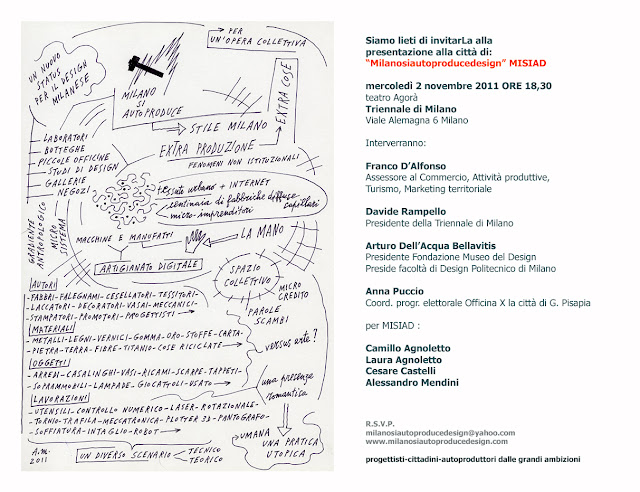 PER
UN'OPERA COLLETTIVA
UN NUOVO
STATUS
PER IL DESIGN
MILANESE
MILANO
SI
AUTOPRODUCE
EXTRA COSE
STILE MILANO
EXTRA PRODUZIONE
FENOMENI NON ISTITUZIONALI
— LABORATORI
— BOTTEGHE
— PICCOLE OFFICINE
— STUDI DI DESIGN
— GALLERIE
NEGOZI
tessuto urbano + INTERNET
centinaia di fabbriche diffuse
capillari
micro-imprenditori
GRADIENTE
ANTROPOLOGICO
MICRO
SISTEMA
MACCHINE E MANUFATTI
LA MANO
ARTIGIANATO DIGITALE
SPAZIO
COLLETTIVO
MICRO
CREDITO
PAROLE
SCAMBI
AUTORI
— FABBRI-FALEGNAMI-CESELLATORI-TESSITORI-
— LACCATORI-DECORATORI-VASAI-MECCANICI-
— STAMPATORI-PROMOTORI-PROGETTISTI
MATERIALI
— METALLI-LEGNI-VERNICI-GOMMA-ORO-STOFFE-CARTA-
— PIETRA-TERRA-FIBRE-TITANIO-COSE RICICLATE
versus arte?
OGGETTI
— ARREDI-CASALINGHI-VASI-RICAMI-SCARPE-TAPPETI-
— SOPRAMMOBILI-LAMPADE-GIOCATTOLI-USATO
una presenza
romantica
LAVORAZIONI
— UTENSILI-CONTROLLO NUMERICO-LASER-ROTAZIONALE-
— TORNIO-TRAFILA-MECCATRONICA-PLOTTER 3D-PANTOGRAFO-
— SOFFIATURA-INTAGLIO-ROBOT
UMANA
UNA PRATICA
UTOPICA
A.M.
2011
UN DIVERSO SCENARIO
TECNICO
TEORICO
Siamo lieti di invitarLa alla
presentazione alla città di:
"Milanosiautoproducedesign" MISIAD
mercoledì 2 novembre 2011 ORE 18,30
teatro Agorà
Triennale di Milano
Viale Alemagna 6 Milano
Interverranno:
Franco D'Alfonso
Assessore al Commercio, Attività produttive,
Turismo, Marketing territoriale
Davide Rampello
Presidente della Triennale di Milano
Arturo Dell'Acqua Bellavitis
Presidente Fondazione Museo del Design
Preside facoltà di Design Politecnico di Milano
Anna Puccio
Coord. progr. elettorale Officina X la città di G. Pisapia
per MISIAD :
Camillo Agnoletto
Laura Agnoletto
Cesare Castelli
Alessandro Mendini
R.S.V.P.
milanosiautoproducedesign@yahoo.com
www.milanosiautoproducedesign.com
progettisti-cittadini-autoproduttori dalle grandi ambizioni